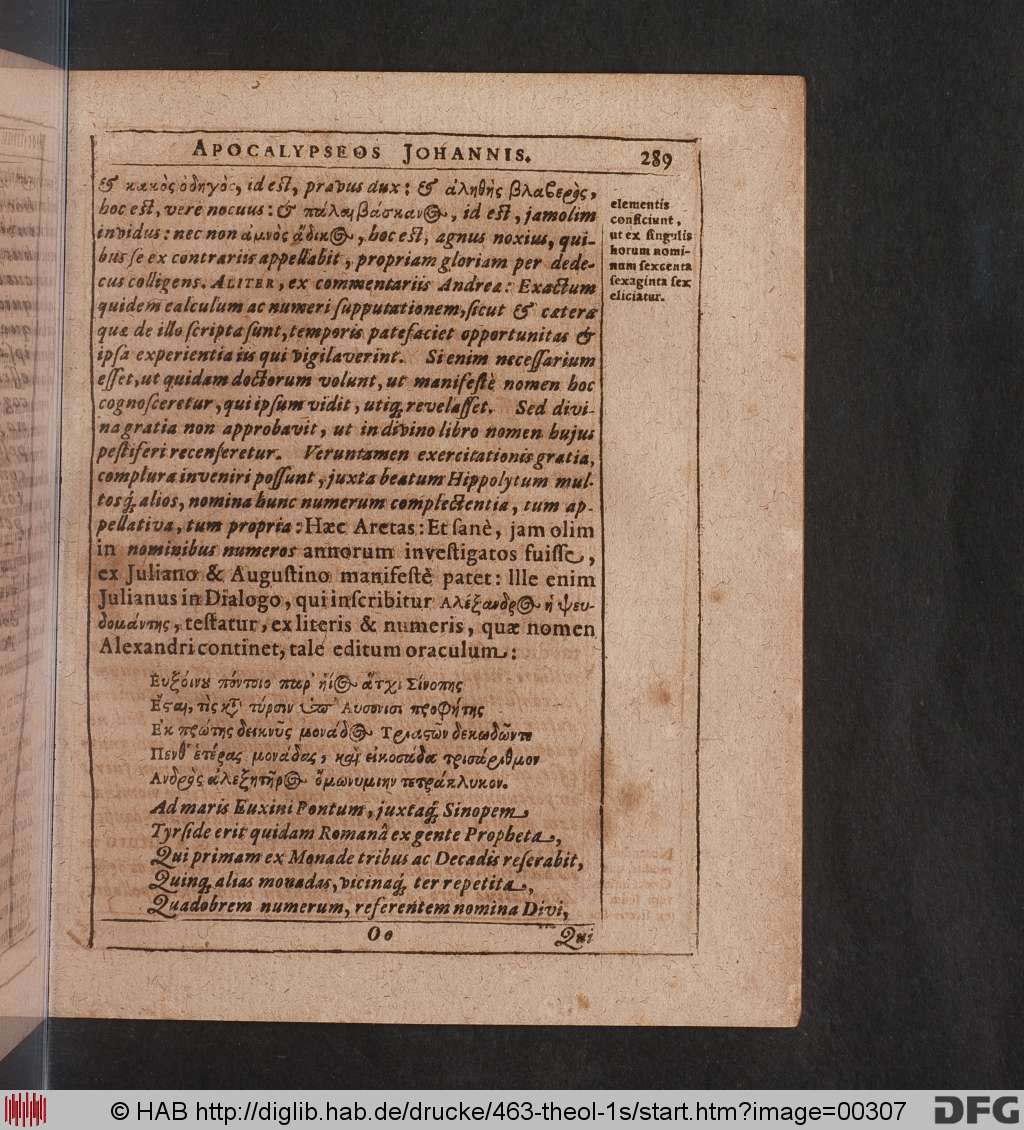 APOCALYPSEOS JOHANNIS. 289
& κακὸς ὁδηγὸς, id est, pravus dux: & ἀληθὴς βλαβερὸς,
hoc est, vere nocuus: & πάλαι βάσκανος, id est, jamolim
invidus: nec non ἀμνὸς ἄδικος, hoc est, agnus noxius, qui-
bus se ex contrariis appellabit, propriam gloriam per dede-
cus colligens. ALITER, ex commentariis Andreæ: Exactum
quidem calculum ac numeri supputationem, sicut & cætera
quæ de illo scripta sunt, temporis patefaciet opportunitas &
ipsa experientia iis qui vigilaverint. Si enim necessarium
esset, ut quidam doctorum volunt, ut manifestè nomen hoc
cognosceretur, qui ipsum vidit, utiq; revelasset. Sed divi-
na gratia non approbavit, ut in divino libro nomen hujus
pestiferi recenseretur. Veruntamen exercitationis gratia,
complura inveniri possunt, juxta beatum Hippolytum mul-
tosq; alios, nomina hunc numerum complectentia, tum ap-
pellativa, tum propria: Hæc Aretas: Et sanè, jam olim
in nominibus numeros annorum investigatos fuisse,
ex Juliano & Augustino manifestè patet: Ille enim
Julianus in Dialogo, qui inscribitur Αλέξανδρος ἢ ψευ-
δομάντης, testatur, ex literis & numeris, quæ nomen
Alexandri continet, tale editum oraculum:
Εὐξείνου πόντοιο παρ' ἠϊόσιν ἄγχι Σινώπης
Ἔσται, τὶς κατὰ τύρσιν ὑπ' Αυσονίοισι προφήτης
Ἐκ πρώτης δεικνὺς μονάδος Τρισσῶν δεκάδων τε
Πένθ' ἑτέρας μονάδας, καὶ εἰκοσάδα τρισάριθμον
Ἀνδρὸς ἀλεξητῆρος ὁμωνυμίην τετράκυκλον.
Ad maris Euxini Pontum, juxtaq; Sinopem,
Tyrside erit quidam Romanâ ex gente Propheta,
Qui primam ex Monade tribus ac Decadis reserabit,
Quinq; alias monadas, vicinaq; ter repetita,
Quadobrem numerum, referentem nomina Divi,
Oo Qui
elementis
conficiunt,
ut ex singulis
horum nomi-
num sexcenta
sexaginta sex
eliciatur.
© HAB http://diglib.hab.de/drucke/463-theol-1s/start.htm?image=00307
DFG